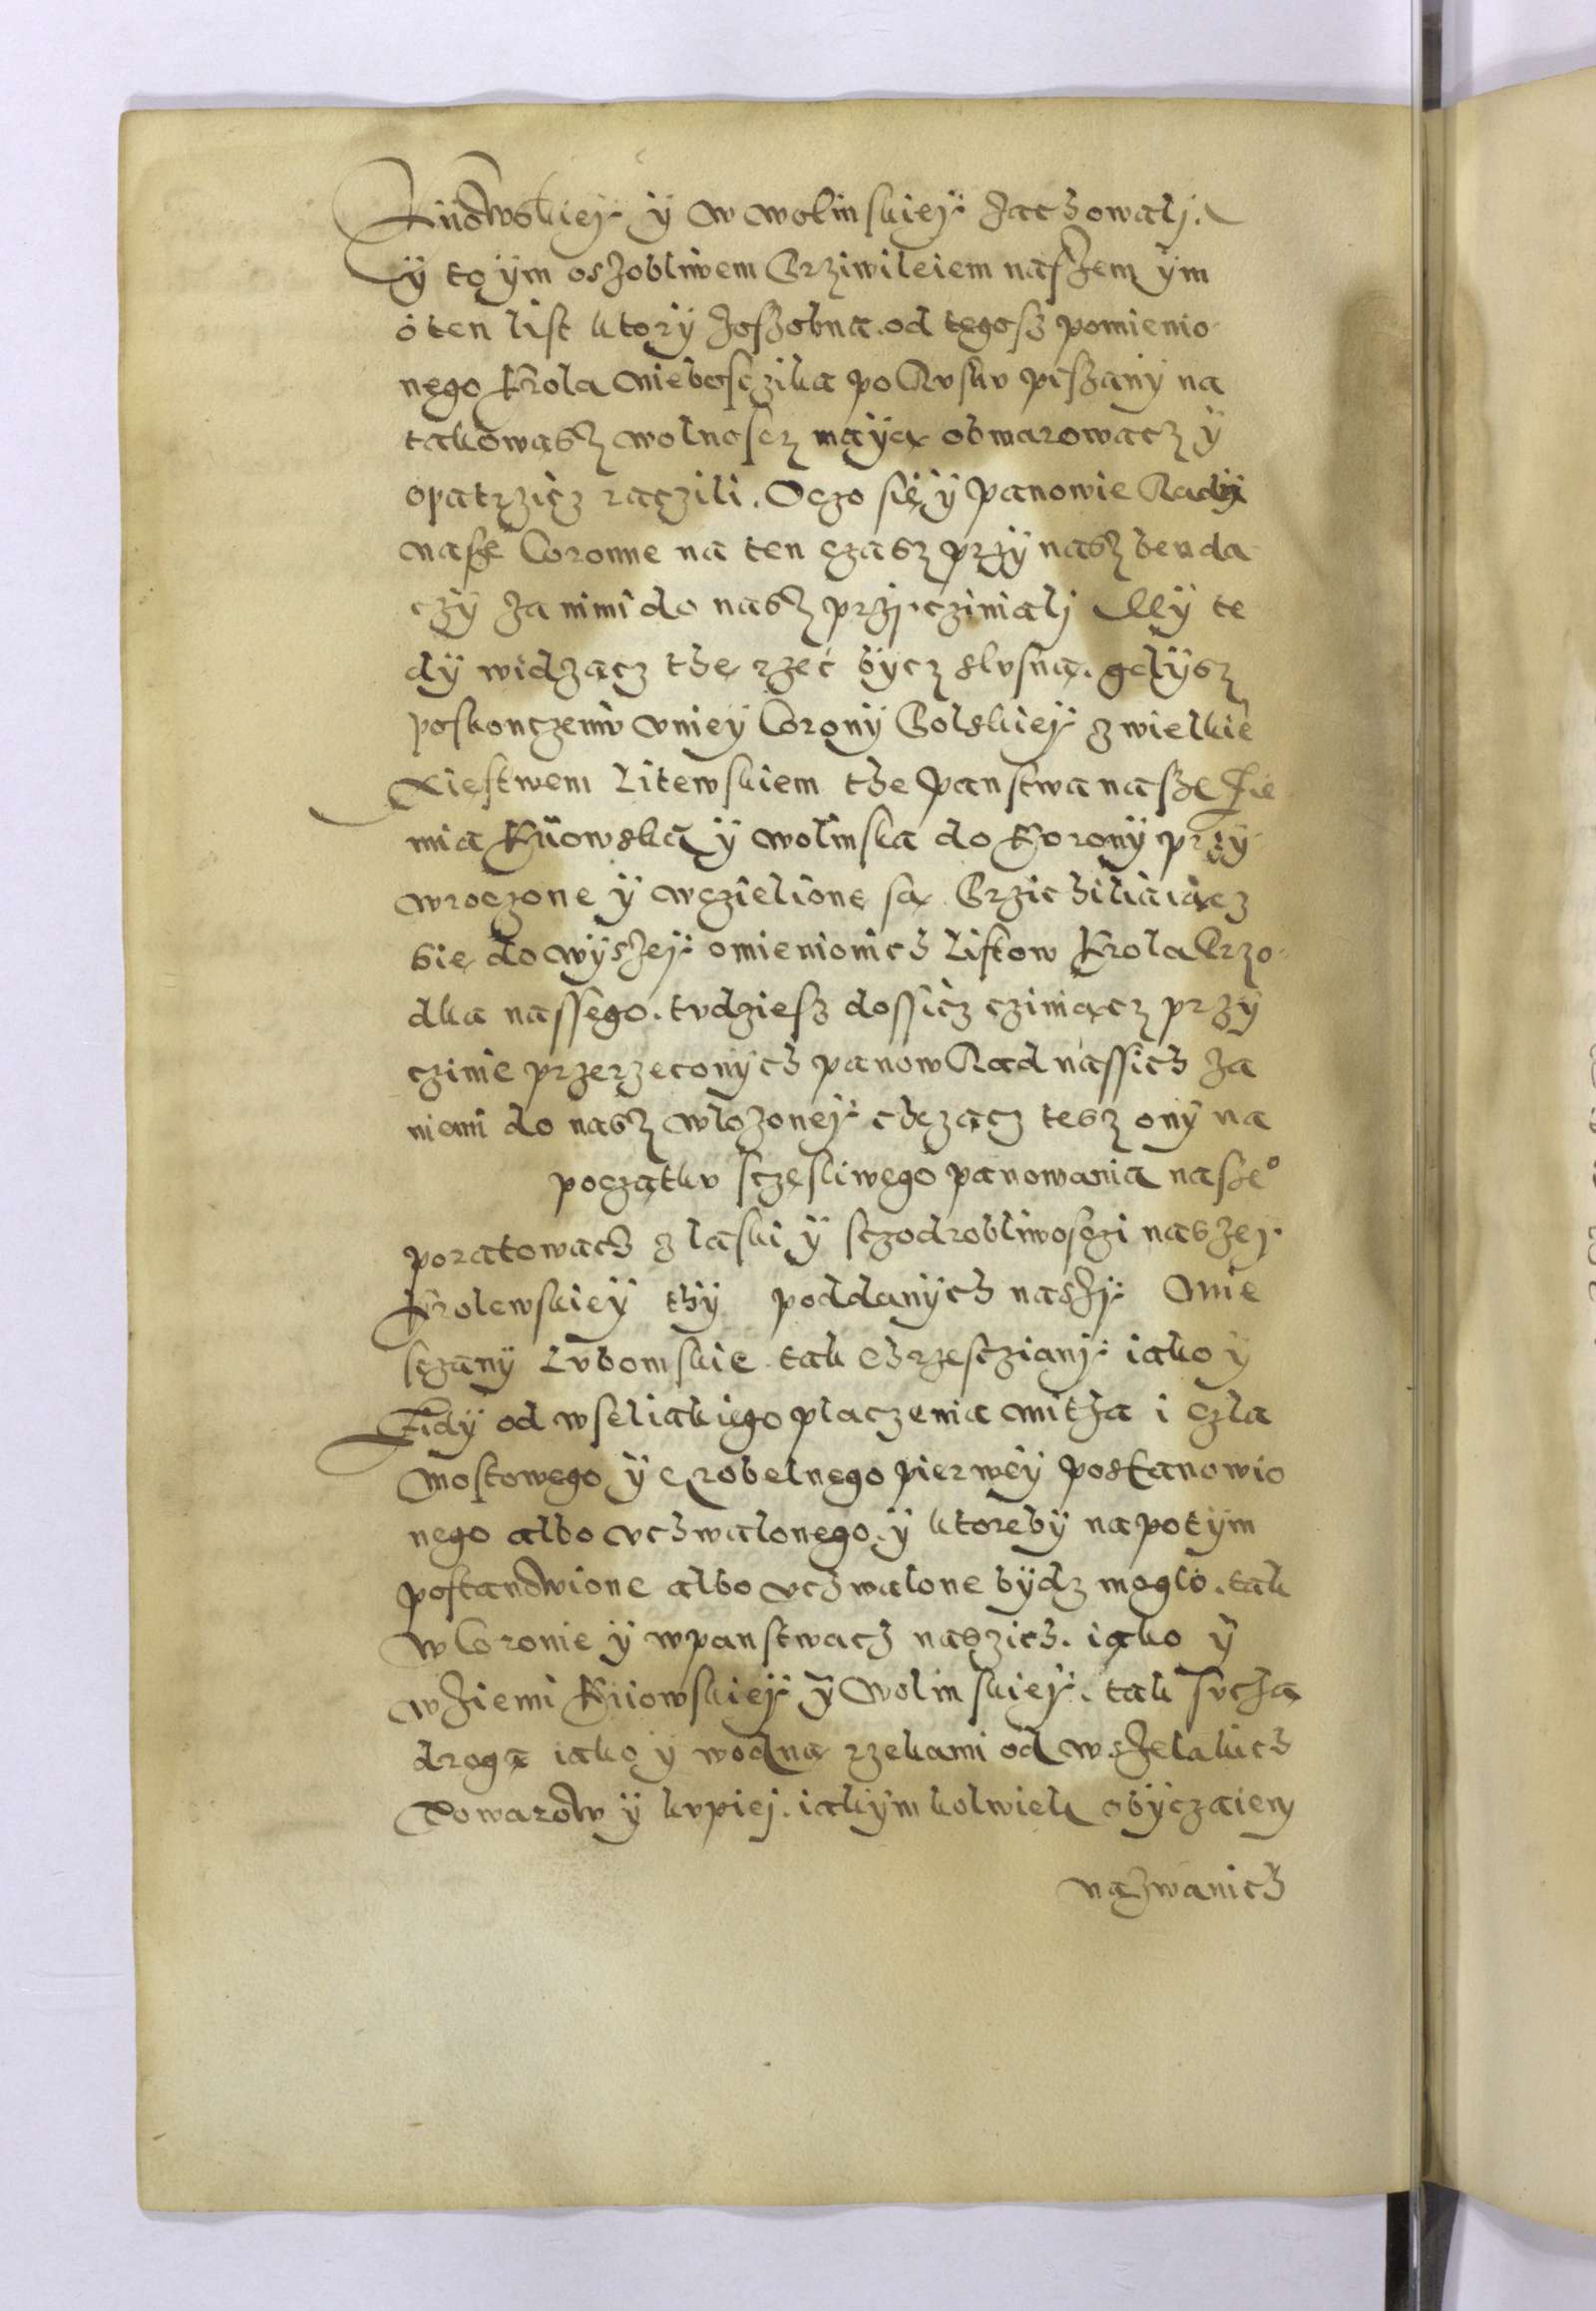 Kiiowskiej ÿ w wolinskiej zachowalj.
ÿ to ÿm oszobliwem Przÿwileiem naszem ÿm
o ten list ktorÿ zoszobna. od tegosz pomienio
nego Krola niebosczika po Rusku piszanÿ na
takowasz wolnoscz maÿą obwarowacz ÿ
opatrzicz raczili. Oczo się ÿ panowie Radÿ
nasze Coronne na ten czasz przÿ nasz benda
czÿ za nimi do nasz przÿcziniali Mÿ te
dÿ widzącz the rzec bÿcz slusną. gdÿsz
poskonczeniu Vniey Coronÿ Polskiej z wielkie
Xięstwem Litewskiem the panstwa nasze Zie
mia Kiiowska ÿ wolinska do Koronÿ przÿ
wroczone ÿ wczielione są. Przichiliaiącz
się do wÿszej omienionich Listow Krola Przo
dka nassego. tudziesz dossicz cziniącz przÿ
czinie przerzeconÿch panow Rad nassich za
niemi do nasz wlozonej chczącz tesz onÿ na
początku sczęsliwego panowania nasze°
poratowach z laski ÿ sczodrobliwosczi naszej
Krolewskieÿ thÿ poddanÿch naszÿ Mie
sczanÿ Lubomskie tak Chrzesczianÿ iako ÿ
Zidÿ od wseliakiego placzenia mitha i czla
mostowego ÿ grobelnego pierweÿ postanowio
nego albo uchwalonego. ÿ ktorebÿ napotÿm
postanowione albo uchwalone bÿdz moglo. tak
w Coronie ÿ w panstwach naszich. iako ÿ
w ziemi Kiiowskiej ÿ Wolinskiej. tak suchą
drogą iako ÿ wodną rzekami od wszelakich
Towarow ÿ kupiej. iakÿm kolwiek obÿczaiem
nazwanich